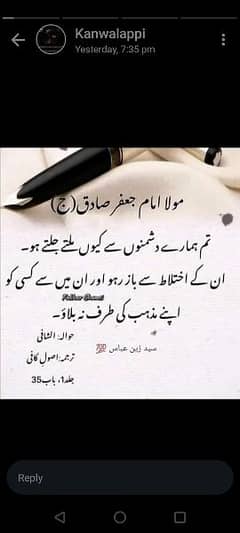 Kanwalappi
Yesterday, 7:35 pm
مولا امام جعفر صادق (ع)
تم ہمارے دشمنوں سے کیوں ملتے جلتے ہو۔
ان کے اختلاط سے باز رہو اور ان میں سے کسی کو
اپنے مذہب کی طرف نہ بلاؤ۔
حوالہ: الشافی
ترجمہ: اصول کافی
سید زین عباس 💯
جلد 1، باب 35
Reply